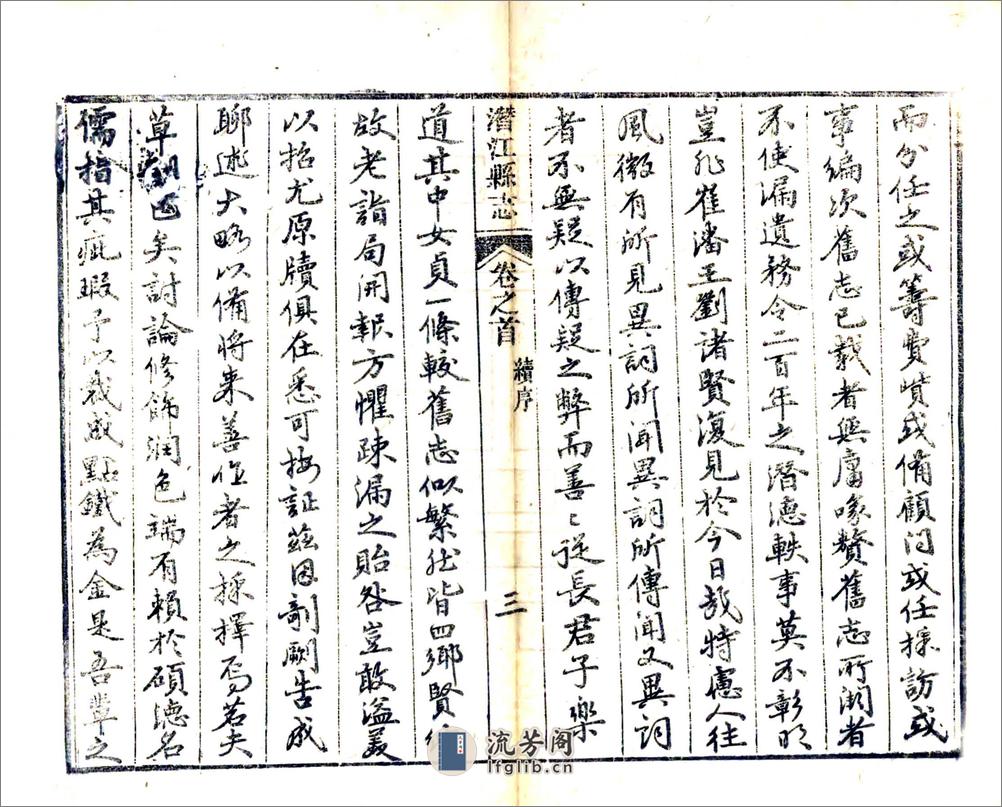 而分任之或籌費或備顧问或任採訪或
事編次舊志已載者無庸喙贅舊志所闕者
不使漏遺務令二百年之潛德軼事莫不彰明
豈非崔潘王劉諸賢復見於今日哉特慮人往
風微有所見異詞所闻異詞所傳闻又異詞
者不無疑以傳疑之弊而善〻從長君子樂
潛江縣志
卷之首
續序
三
道其中女貞一條較舊志似繁然皆四鄉賢
故老詣局開報方懼疎漏之貽咎豈敢溢美
以招尤原牘俱在悉可按証茲因剞劂告成
聊述大略以備將来善作者之採擇焉若夫
草創已矣討論修飾润色端有賴於碩德名
儒指其疵瑕予以裁成點鐵為金是吾輩之
流芳阁
lfglib.cn